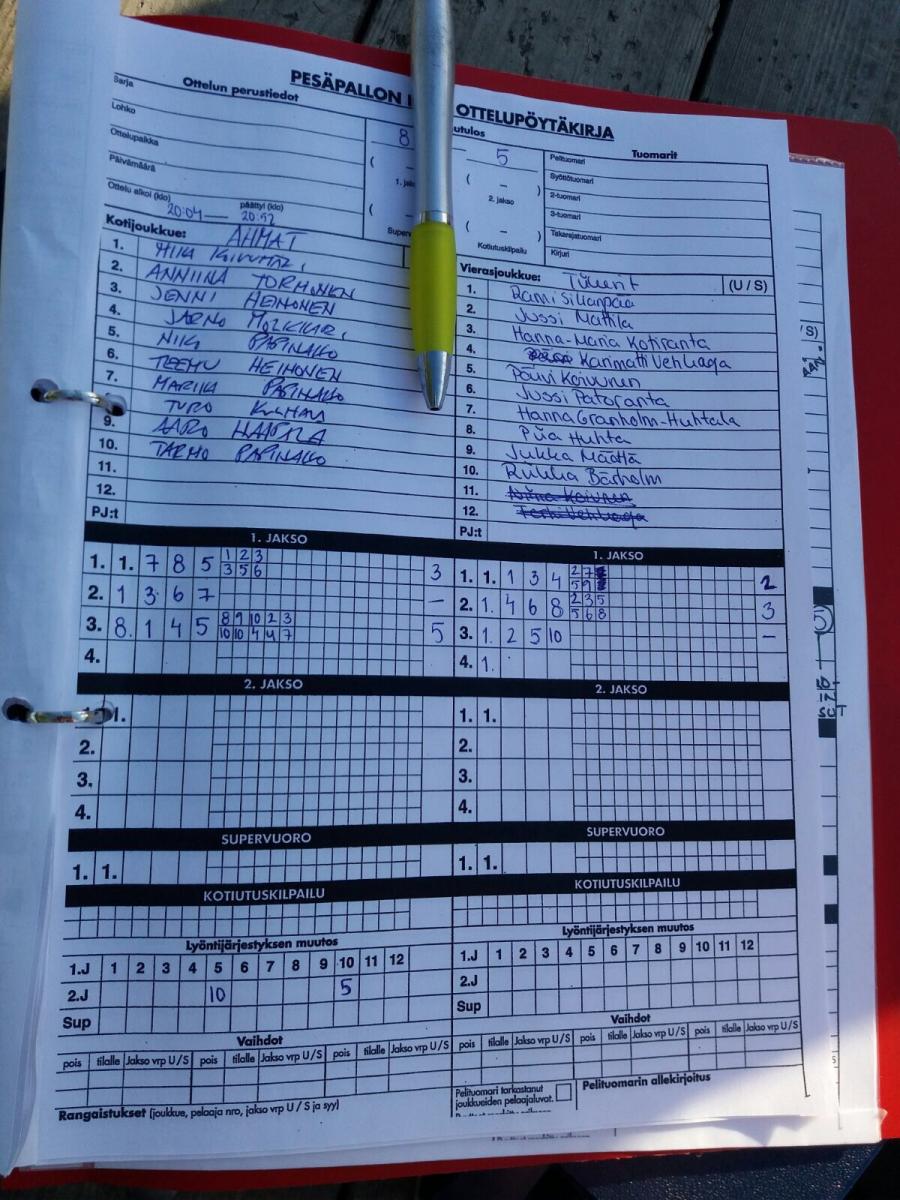 PESÄPALLON
OTTELUPÖYTÄKIRJA
Ottelun perustiedot
Sarja
Lohko
Ottelupaikka
Päivämäärä
Ottelu alkoi (klo) päättyi (klo)
20:04 — 20:52
8
5
( –
1.
( –
( – )
2. jakso
( – )
Kotiutuskilpailu
Tuomarit
Pelituomari
Syöttötuomari
2-tuomari
3-tuomari
Takarajatuomari
Kirjuri
Kotijoukkue: AHMAT
1. MIKA
2. ANNIINA TORMONEN
3. JENNI HEINONEN
4. JARMO
5. NIKO PAPINAHO
6. TEEMU HEIHONEN
7. MARIKA PAPINAHO
TURO
9. AARO HAAPALA
10. TARMO PAPINAHO
11.
12.
PJ:t
Vierasjoukkue: Tiikerit (U / S)
1. Rami Sillanpää
2. Jussi Mattila
3. Hanna-Maria Kotiranta
4. Karimatti Vehkaoja
5. Päivi Koivunen
6. Jussi Patoranta
7. Hanna Granholm-Huhtala
8. Piia Huhta
9. Jukka Määttä
10. Riikka Bärholm
11. Niina Koivunen
12. Terhi Vehkaoja
PJ:t
1. JAKSO
1. 1. 7 8 5 1 2 3
3 5 6
3
2. 1 3 6 7 –
3. 8. 1 4 5 8 9 10 2 3
10 10 4 4 7
5
4.
1. JAKSO
1. 1. 1 3 4 2 7
5 9
2
2. 1. 4 6 8 2 3 5
5 6 8
3
3. 1. 2 5 10 –
4. 1.
2. JAKSO
1.
2.
3.
4.
2. JAKSO
1. 1.
2.
3.
4.
SUPERVUORO
1. 1.
SUPERVUORO
1. 1.
KOTIUTUSKILPAILU
KOTIUTUSKILPAILU
Lyöntijärjestyksen muutos
1.J 1 2 3 4 5 6 7 8 9 10 11 12
2.J 10 5
Sup
Lyöntijärjestyksen muutos
1.J 1 2 3 4 5 6 7 8 9 10 11 12
2.J
Sup
Vaihdot
pois tilalle Jakso vrp U/S pois tilalle Jakso vrp U/S pois tilalle Jakso vrp U/S
Vaihdot
pois tilalle Jakso vrp U/S pois tilalle Jakso vrp U/S pois tilalle Jakso vrp U/S
Rangaistukset (joukkue, pelaaja nro, jakso vrp U / S ja syy)
Pelituomari tarkastanut
joukkueiden pelaajaluvat.
Pelituomarin allekirjoitus